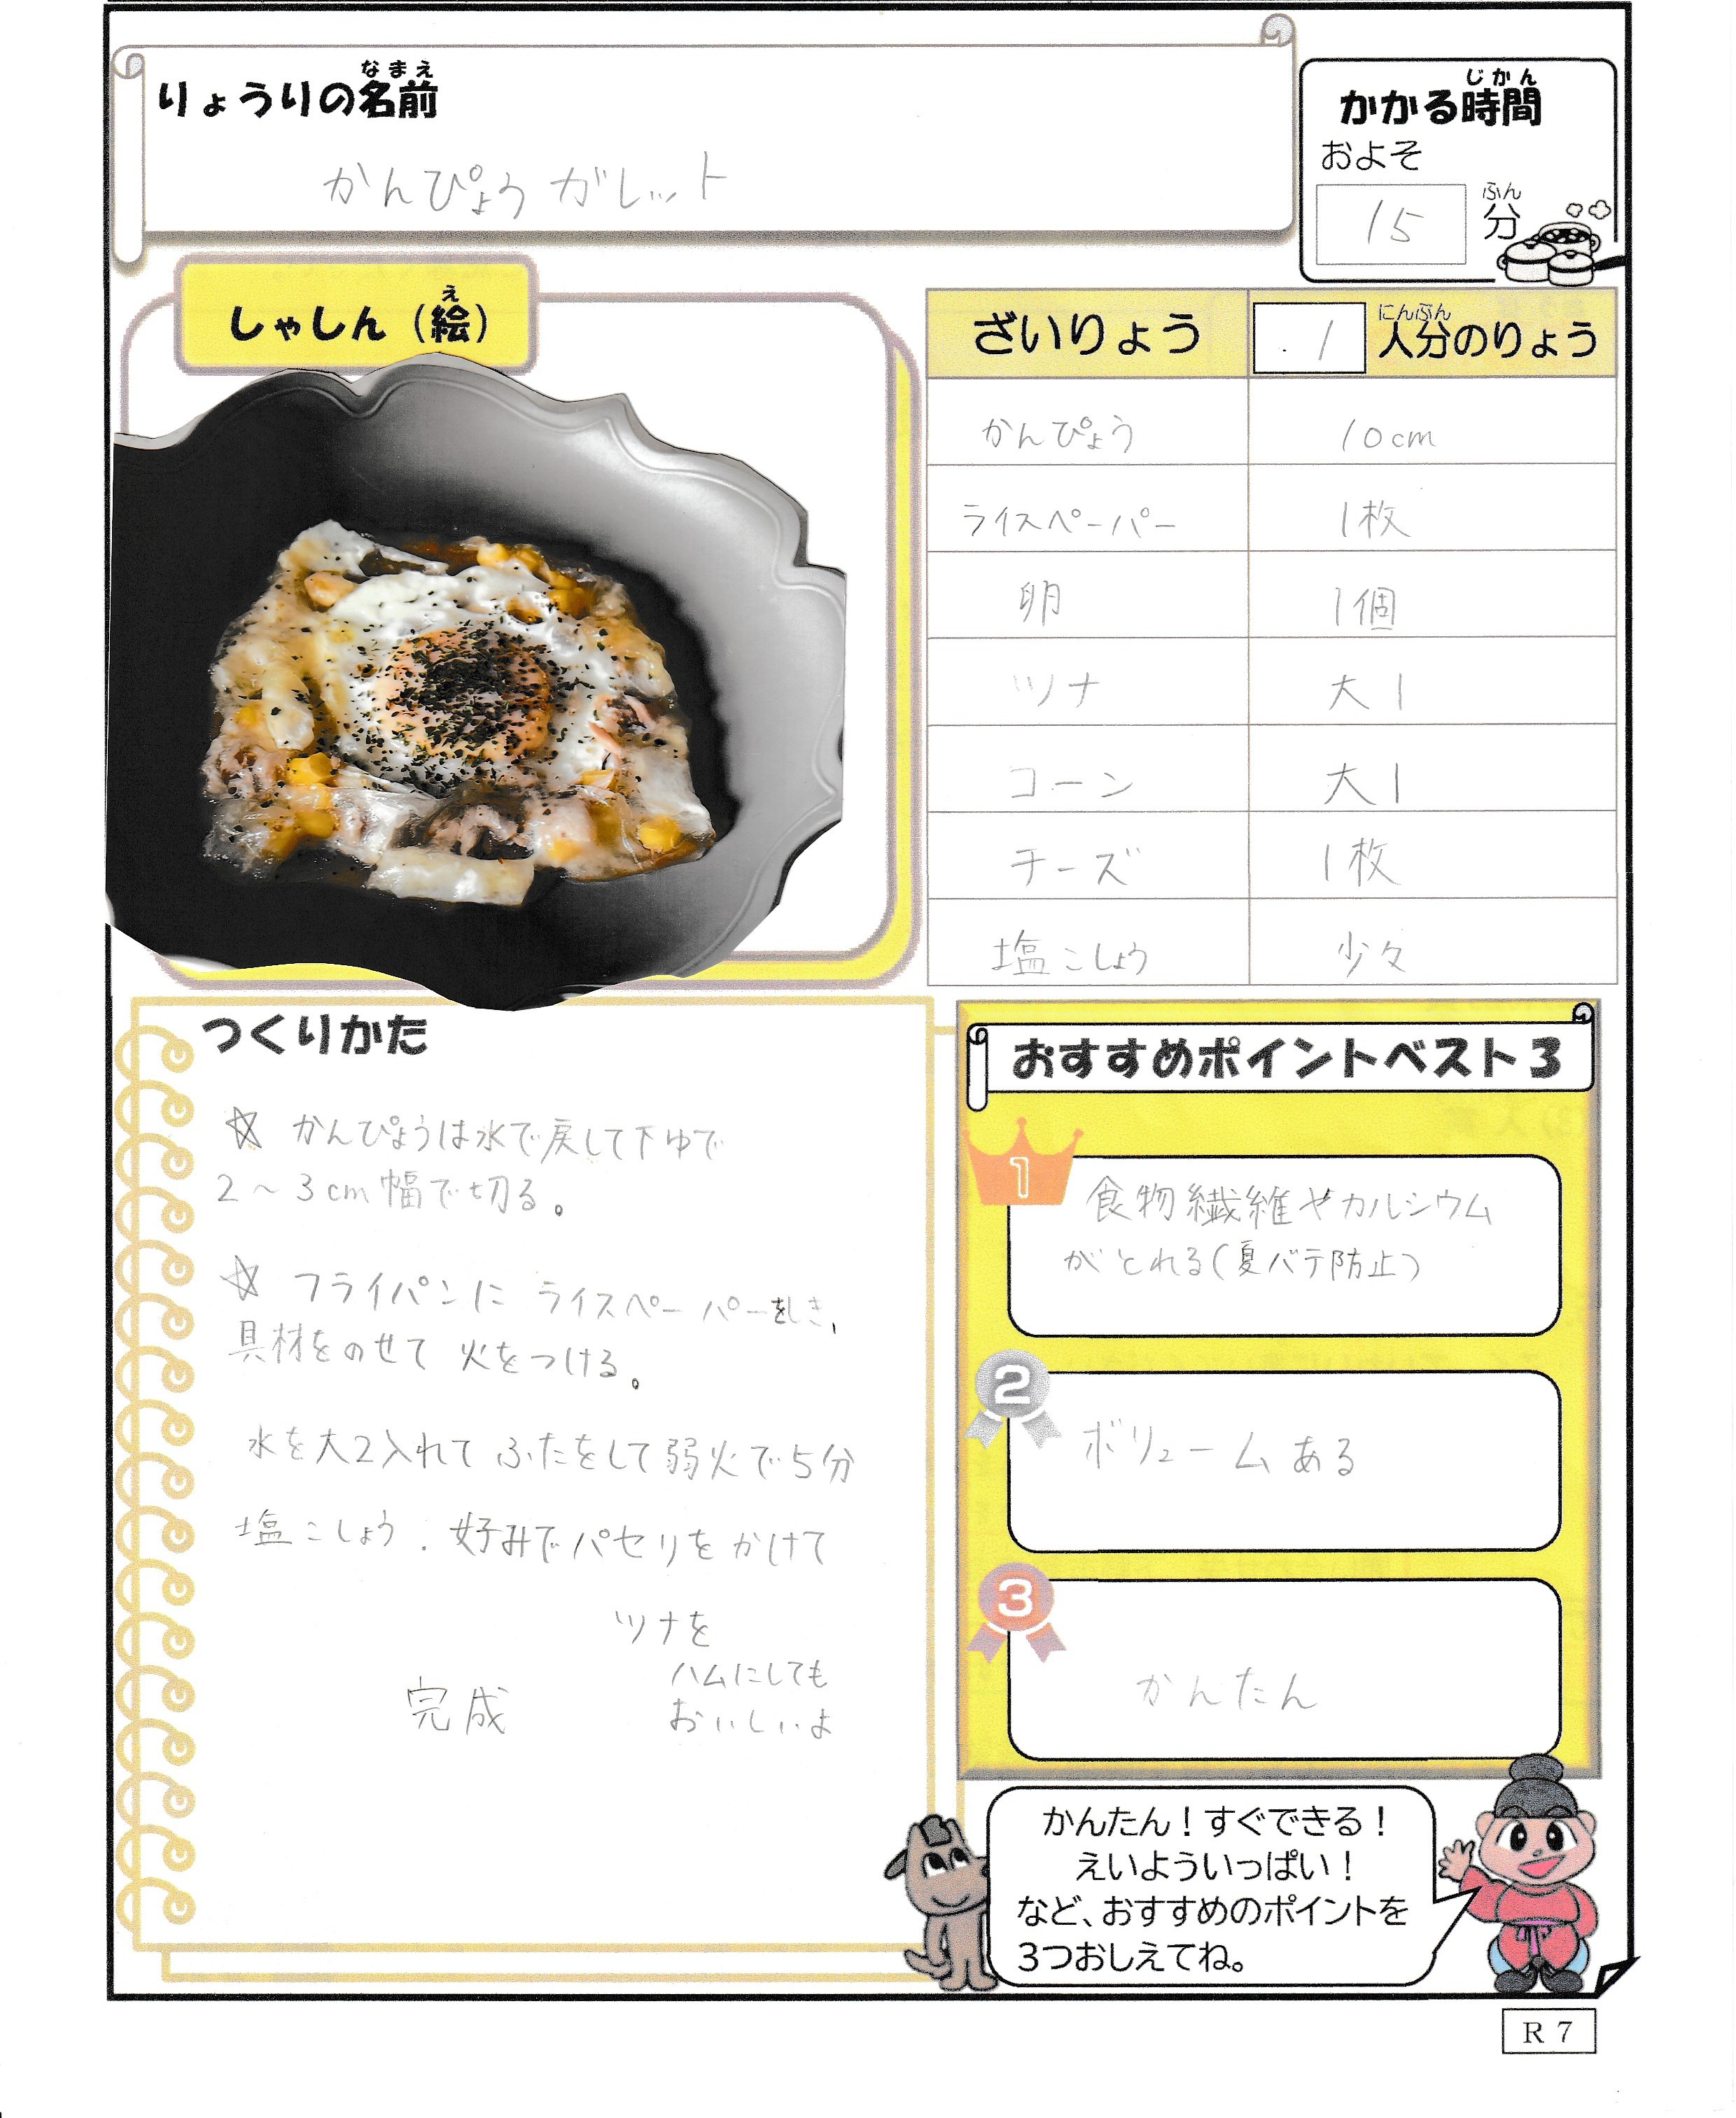 なまえ
りょうりの名前
かんぴょう ガレット
じかん
かかる時間
およそ
ふん
15 分
え
しゃしん（絵）
にんぶん
ざいりょう 1 人分のりょう
かんぴょう 10cm
ライスペーパー 1枚
卵 1個
ツナ 大1
コーン 大1
チーズ 1枚
塩こしょう 少々
つくりかた
☆ かんぴょうは水で戻して下ゆで
2～3cm幅で切る。
☆ フライパンに ライスペーパーをしき、
具材をのせて 火をつける。
水を大2入れて ふたをして弱火で5分
塩こしょう．好みでパセリをかけて
完成
ツナを
ハムにしても
おいしいよ
おすすめポイントベスト3
1
食物繊維やカルシウム
がとれる(夏バテ防止)
2
ボリュームある
3
かんたん
かんたん！すぐできる！
えいよういっぱい！
など、おすすめのポイントを
3つおしえてね。
R7